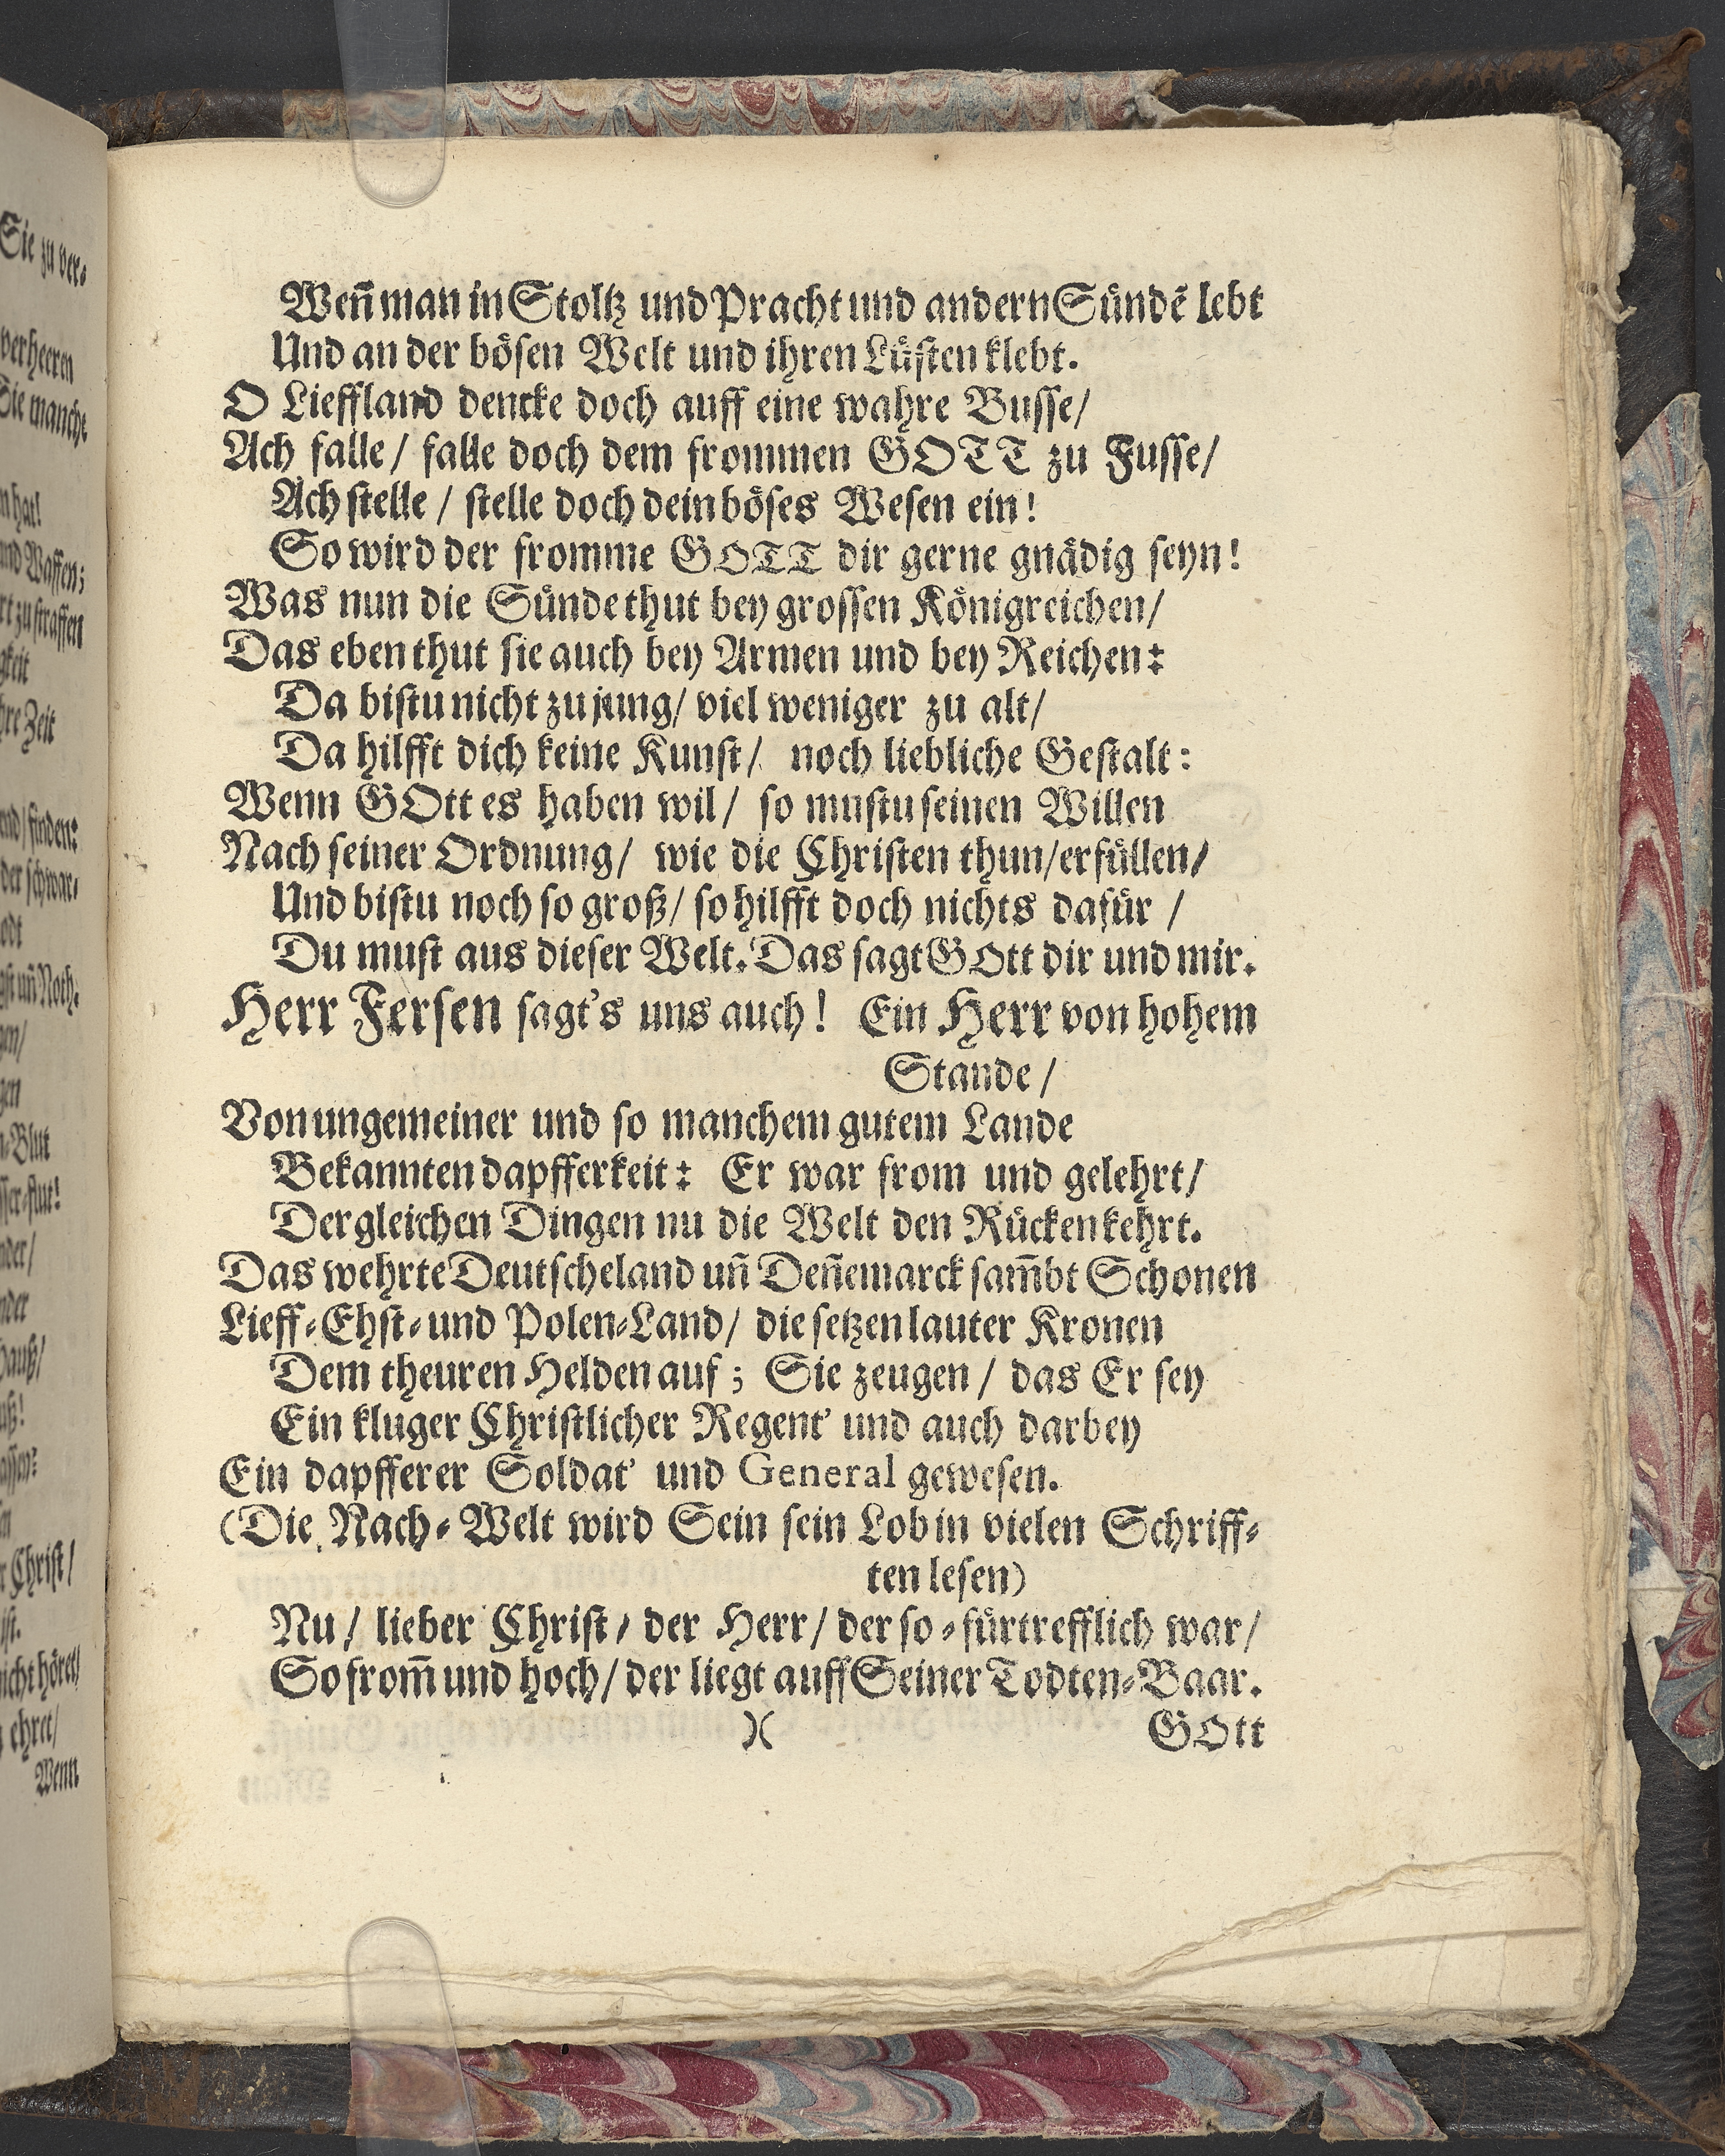 Weñ man in Stoltz und Pracht und andern Sündẽ lebt
Und an der bösen Welt und ihren Lüsten klebt.
O Lieffland dencke doch auff eine wahre Busse/
Ach falle/ falle doch dem frommen GOTT zu Fusse/
Ach stelle / stelle doch dein böses Wesen ein!
So wird der fromme GOTT dir gerne gnädig seyn!
Was nun die Sünde thut bey grossen Königreichen/
Das eben thut sie auch bey Armen und bey Reichen:
Da bistu nicht zu jung/ viel weniger zu alt/
Da hilfft dich keine Kunst/ noch liebliche Gestalt:
Wenn GOtt es haben wil/ so mustu seinen Willen
Nach seiner Ordnung/ wie die Christen thun/ erfüllen/
Und bistu noch so groß/ so hilfft doch nichts dafür /
Du must aus dieser Welt. Das sagt GOtt dir und mir.
Herr Fersen sagt's uns auch! Ein Herr von hohem
Stande /
Von ungemeiner und so manchem gutem Lande
Bekannten dapfferkeit: Er war from und gelehrt/
Dergleichen Dingen nu die Welt den Rücken kehrt.
Das wehrte Deutscheland uñ Deñemarck sam̃bt Schonen
Lieff-Ehst-und Polen-Land/ die setzen lauter Kronen
Dem theuren Helden auf; Sie zeugen / das Er sey
Ein kluger Christlicher Regent' und auch darbey
Ein dapfferer Soldat' und General gewesen.
(Die Nach-Welt wird Sein sein Lob in vielen Schriff-
ten lesen)
Nu / lieber Christ / der Herr/ der so-fürtrefflich war/
So from̃ und hoch/ der liegt auff Seiner Todten-Baar.
)( GOtt
Sie zu ver-
verheeren
Sie manche
n hat!
nd Waffen;
rt zu straffen
gkeit
hre Zeit
end/ finden:
der schwar-
odt
gst uñ Noth.
gen
n-Blut
sser-flut!
nder/
nder
hauß/
r Christ/
ist.
nicht höret/
ehret/
Wenn